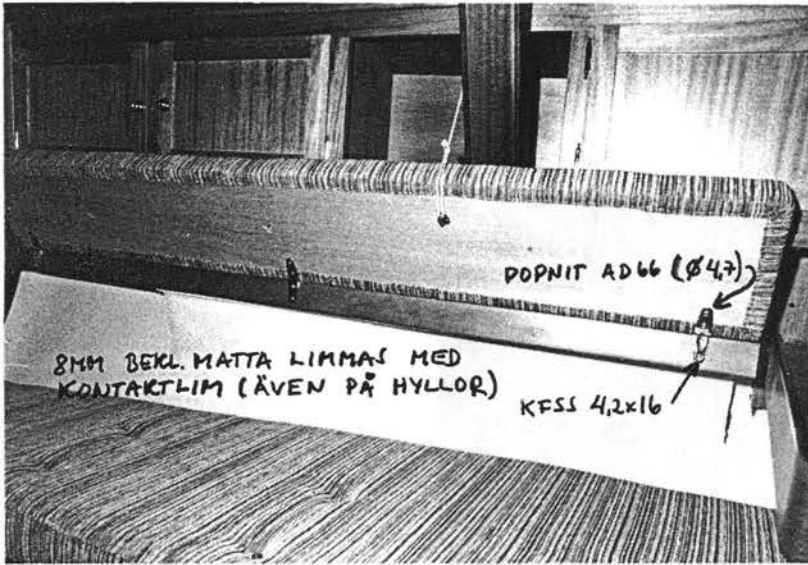 POPNIT AD66 (Ø4,7)
8MM BEKL. MATTA LIMMAS MED
KONTAKTLIM (ÄVEN PÅ HYLLOR)
KFSS 4,2x16